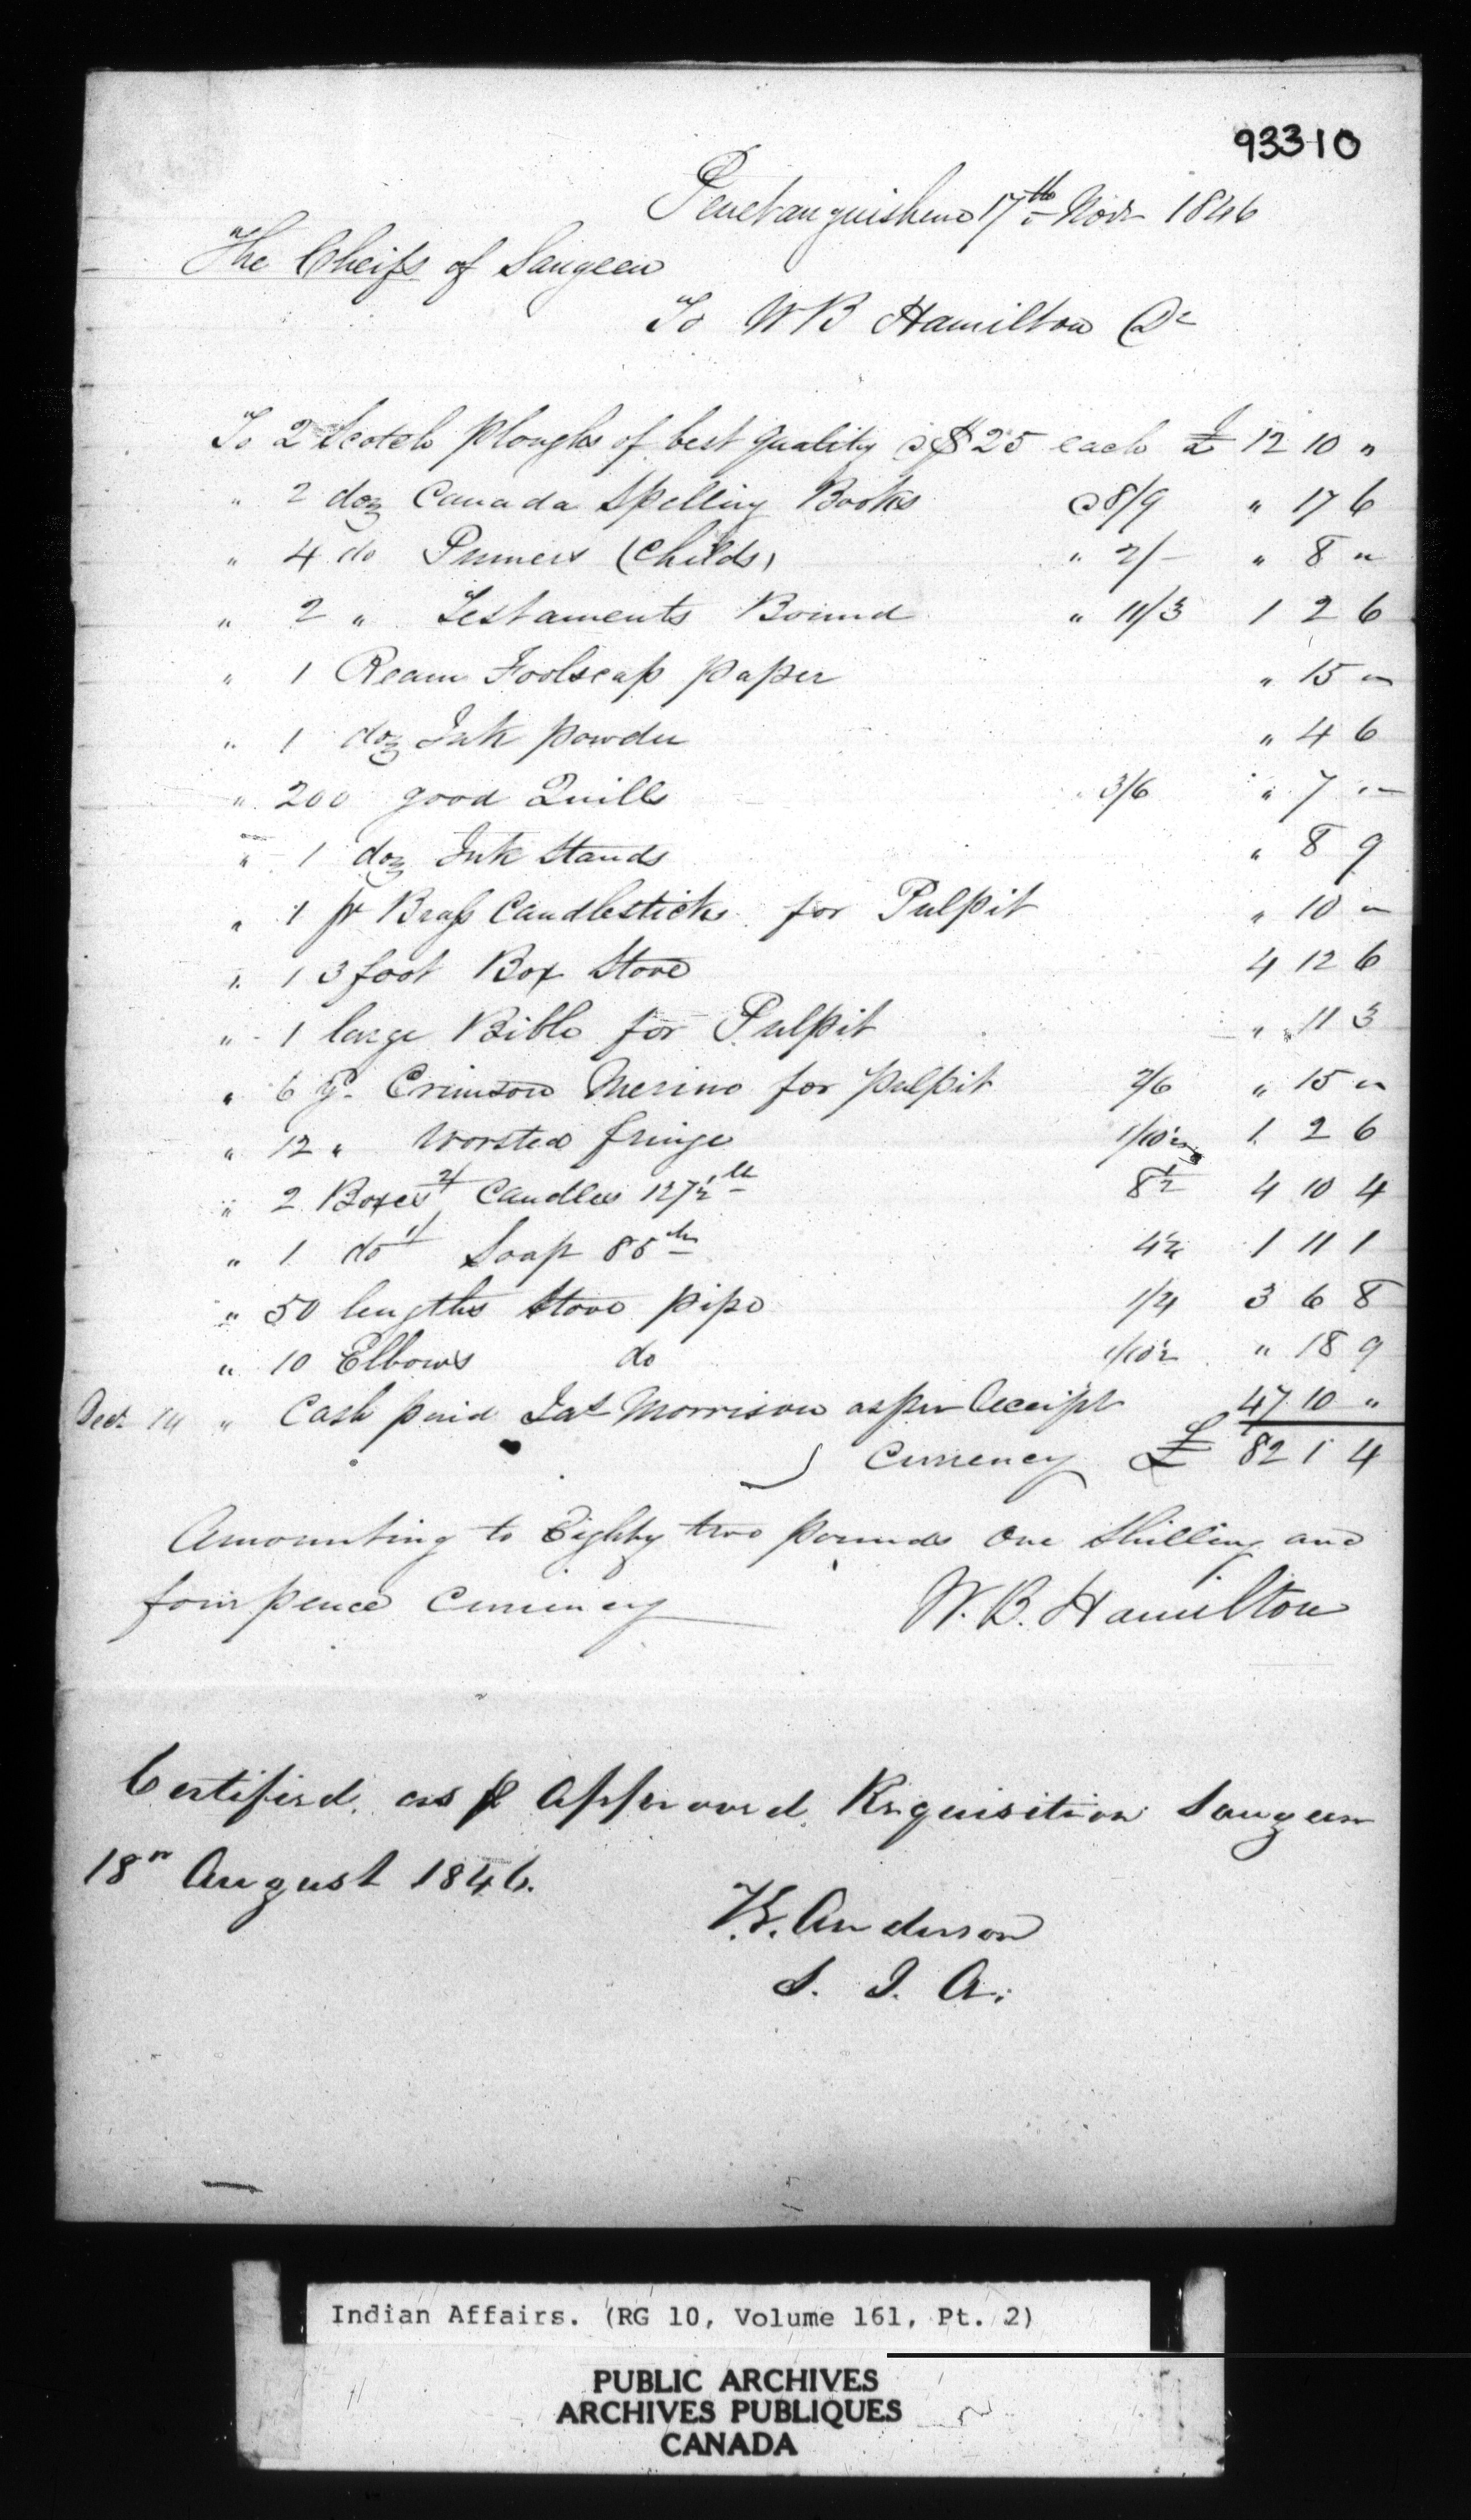 93310
Penetanguishene 17th Novr 1846
The Cheifs of Saugeen
To W B Hamilton Dr
To 2 Scotch Ploughs of best quality @ $25 each £ 12 10 "
" 2 doz Canada Spelling Books @ 8/9 " 17 6
" 4 do Primers (Childs) " 2/- " 8 "
" 2 " Testaments Bound " 11/3 1 2 6
" 1 Ream Foolscap paper " 15 "
" 1 doz Ink powder " 4 6
" 200 good Quills " 3/6 " 7 "
" 1 doz Ink Stands " 8 9
" 1 pr Brass Candlesticks for Pulpit " 10 "
" 1 3 foot Box Stove 4 12 6
" 1 large Bible for Pulpit " 11 3
" 6 y. Crimson Merino for pulpit 2/6 " 15 "
" 12 " Worsted fringe 1/10½ 1 2 6
" 2 Boxes 2/ Candles 127½ lb 8½ 4 10 4
" 1 do 1/ Soap 85 lbs 4½ 1 11 1
" 50 lengths Stove pipe 1/4 3 6 8
" 10 Elbows do 1/10½ " 18 9
Decr 14 " Cash paid Jas Morrison as per Receipt 47 10 "
Currency £ 82 1 4
Amounting to Eighty two pounds One Shilling and
four pence Currency
W. B. Hamilton
Certified, as pr Approved Requisition Saugeen
18th August 1846.
T. G. Anderson
S. I. A.
Indian Affairs. (RG 10, Volume 161, Pt. 2)
PUBLIC ARCHIVES
ARCHIVES PUBLIQUES
CANADA